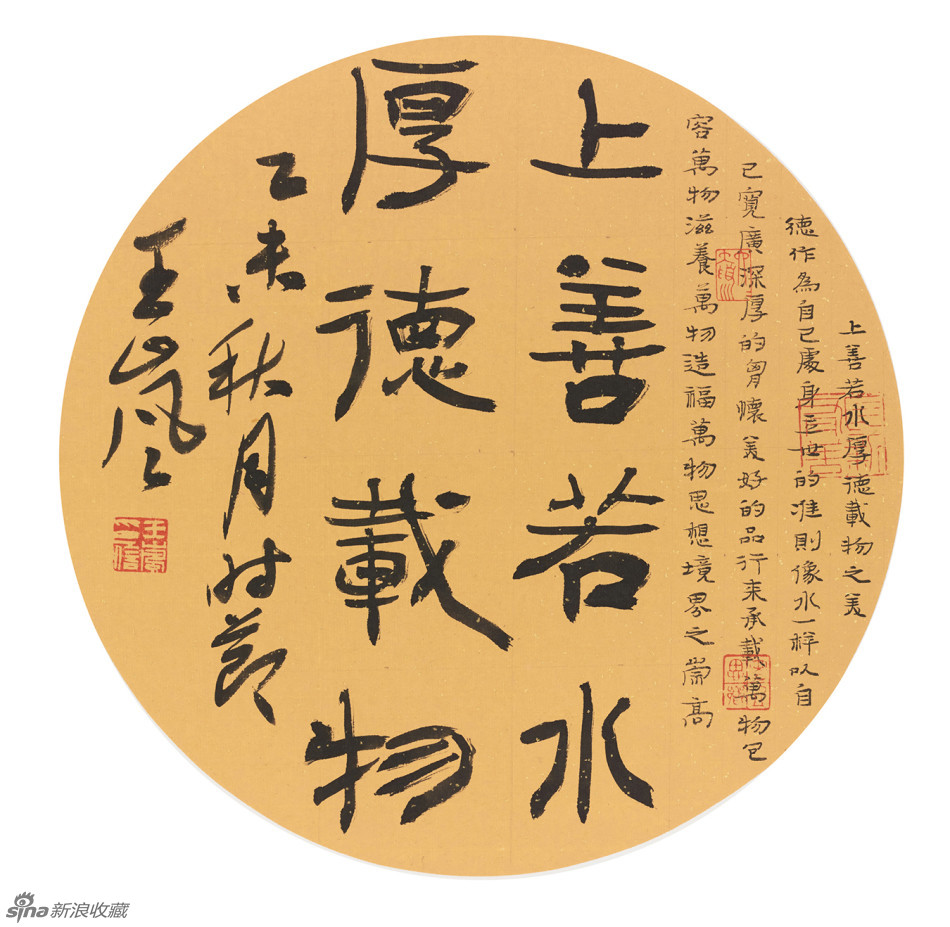 上善若水厚德載物之美
德作為自己處身立世的准則像水一样以自
己寬廣深厚的胷懷美好的品行来承載萬物包
容萬物滋養萬物造福萬物思想境界之崇高
上善若水
厚德載物
乙未秋月时節
王嵐
sina新浪收藏